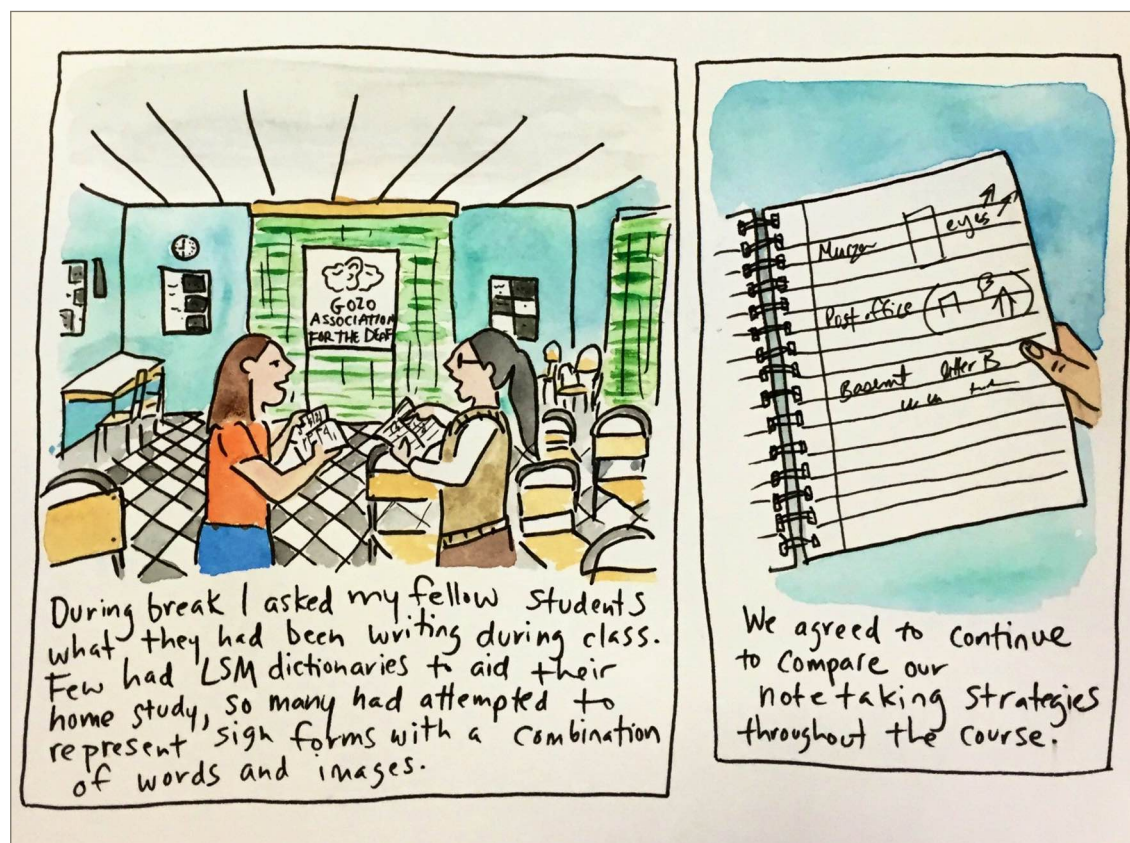 GOZO
ASSOCIATION
FOR THE DEAF
During break I asked my fellow students
what they had been writing during class.
Few had LSM dictionaries to aid their
home study, so many had attempted to
represent sign forms with a combination
of words and images.
eyes
Post office B
letter B
We agreed to continue
to compare our
note taking strategies
throughout the course.